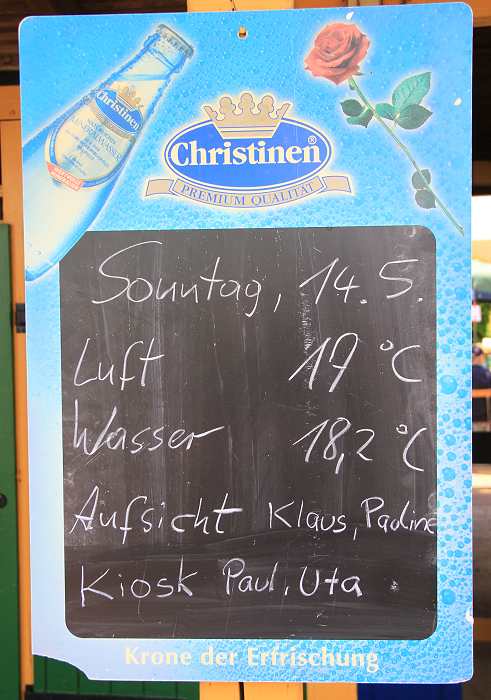 Christinen
Christinen®
PREMIUM QUALITÄT
Sonntag, 14. 5.
Luft 17 °C
Wasser 18,2 °C
Aufsicht Klaus, Pauline
Kiosk Paul, Uta
Krone der Erfrischung